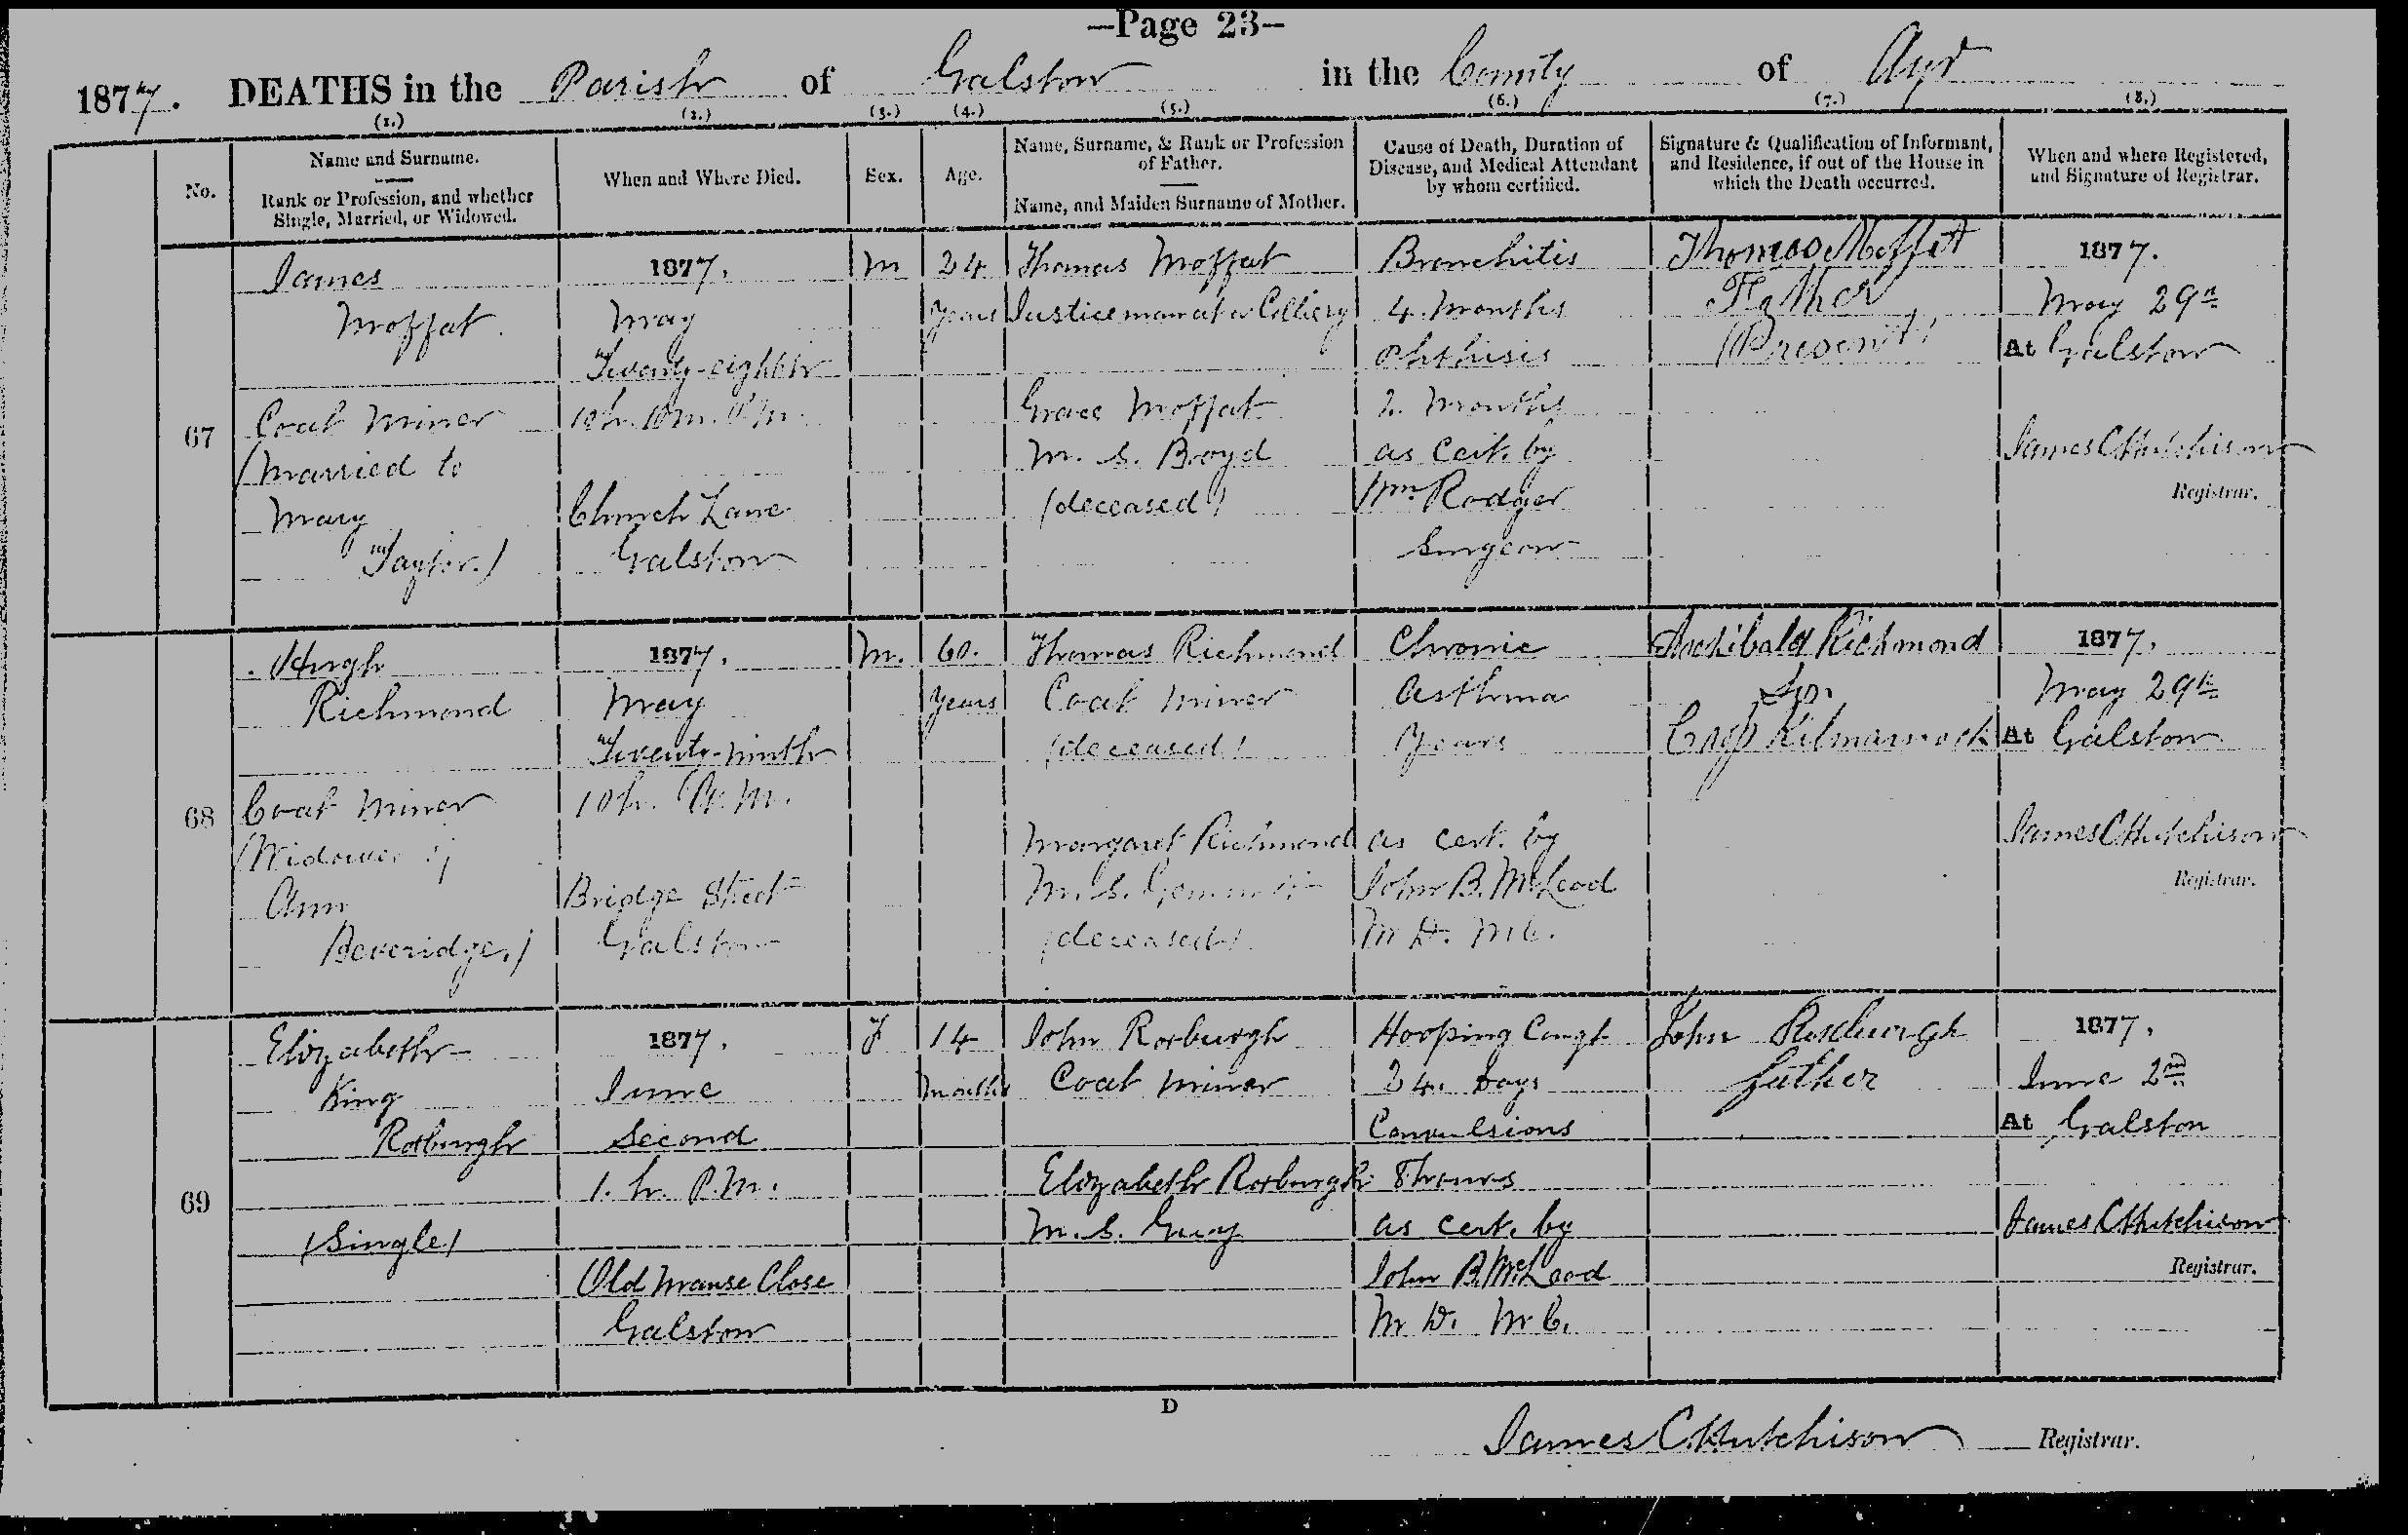 —Page 23—
1877. DEATHS in the Parish of Galston in the County of Ayr
(1.) (2.) (3.) (4.) (5.) (6.) (7.) (8.)
No.
Name and Surname.
Rank or Profession, and whether
Single, Married, or Widowed.
When and Where Died.
Sex.
Age.
Name, Surname, & Rank or Profession
of Father.
Name, and Maiden Surname of Mother.
Cause of Death, Duration of
Disease, and Medical Attendant
by whom certified.
Signature & Qualification of Informant,
and Residence, if out of the House in
which the Death occurred.
When and where Registered,
and Signature of Registrar.
67
James
Moffat
Coal Miner
(Married to
Mary
Taylor.)
1877.
May
Twenty-eighth
10h. 10m. P.M.
Church Lane
Galston
M
24
years
Thomas Moffat
Justiceman at a Colliery
Grace Moffat
M. S. Boyd
(deceased)
Bronchitis
4. Months
Phthisis
2. Months
as cert. by
Wm Rodger
Surgeon
Thomas Moffet
Father
(Present)
1877.
May 29th
At Galston
James C Hutchison
Registrar.
68
Hugh
Richmond
Coal Miner
(Widower of
Ann
Beveridge.)
1877.
May
Twenty-ninth
10h. A.M.
Bridge Street
Galston
M.
60.
years
Thomas Richmond
Coal Miner
(deceased)
Margaret Richmond
M. S.
(deceased)
Chronic
Asthma
Years
as cert. by
John B. McLeod
M D. M C.
Archibald Richmond
Son
Kilmarnock
1877.
May 29th
At Galston
James C Hutchison
Registrar.
69
Elizabeth
King
Roxburgh
(Single)
1877.
June
Second
1. h. P.M.
Old Manse Close
Galston
F
14
months
John Roxburgh
Coal Miner
Elizabeth Roxburgh
M. S. Guy
Hooping Cough
24. Days
Convulsions
as cert. by
John B. McLeod
M D. M C.
John Roxburgh
father
1877.
June 2nd
At Galston
James C Hutchison
Registrar.
D
James C Hutchison Registrar.